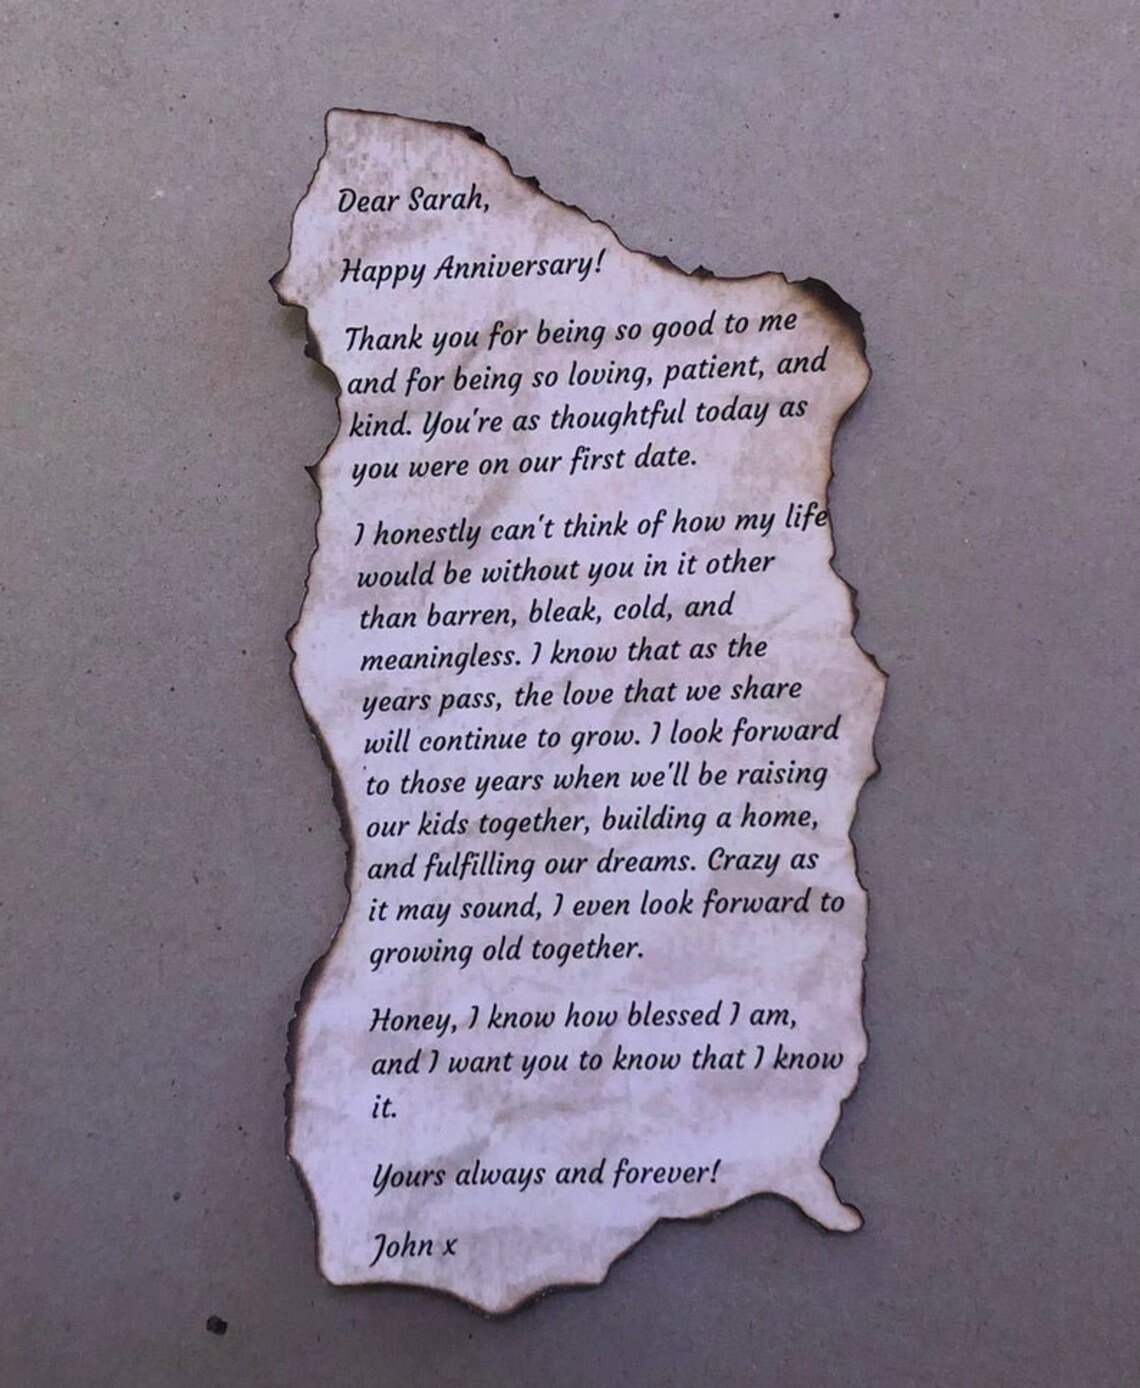 Dear Sarah,
Happy Anniversary!
Thank you for being so good to me
and for being so loving, patient, and
kind. You're as thoughtful today as
you were on our first date.
I honestly can't think of how my life
would be without you in it other
than barren, bleak, cold, and
meaningless. I know that as the
years pass, the love that we share
will continue to grow. I look forward
to those years when we'll be raising
our kids together, building a home,
and fulfilling our dreams. Crazy as
it may sound, I even look forward to
growing old together.
Honey, I know how blessed I am,
and I want you to know that I know
it.
Yours always and forever!
John x